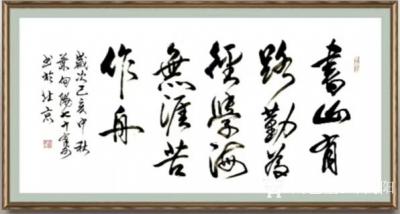 書山有
路勤為
徑學海
無涯苦
作舟
歲次己亥中秋
葉向陽七十有
书於北京